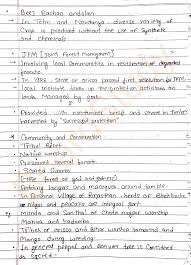 Beej Bachao andolan
In Tehri and Navdanya diverse variety of
Crop is produced without the use of Synthetic
and chemicals
JFM [Joint Forest Management]
Involving local communities in restoration of degraded
forests.
In 1988 State of orissa passed first resolution for JFM.
Local institute took up the protection activities on
lands Managed by govt.
Provided with and share in timber
harvested by 'Successful protection'
Community and Conservation
Tribal Belief
Nature worship
Preserved several forests
Scared Groves
(The forest of god and godness)
Feeding langurs and macaques around temple.
In Bishnoi village of Rajasthan, herds of Blackbucks
or Nilgai and peacocks are integral part.
Munda and Santhal of Chota nagpur worship
Mahua and kadamba
Tribes of orissa and Bihar worship tamarind and
Mango during wedding.
In general peepal and banyan tree is Considered
as Sacred.